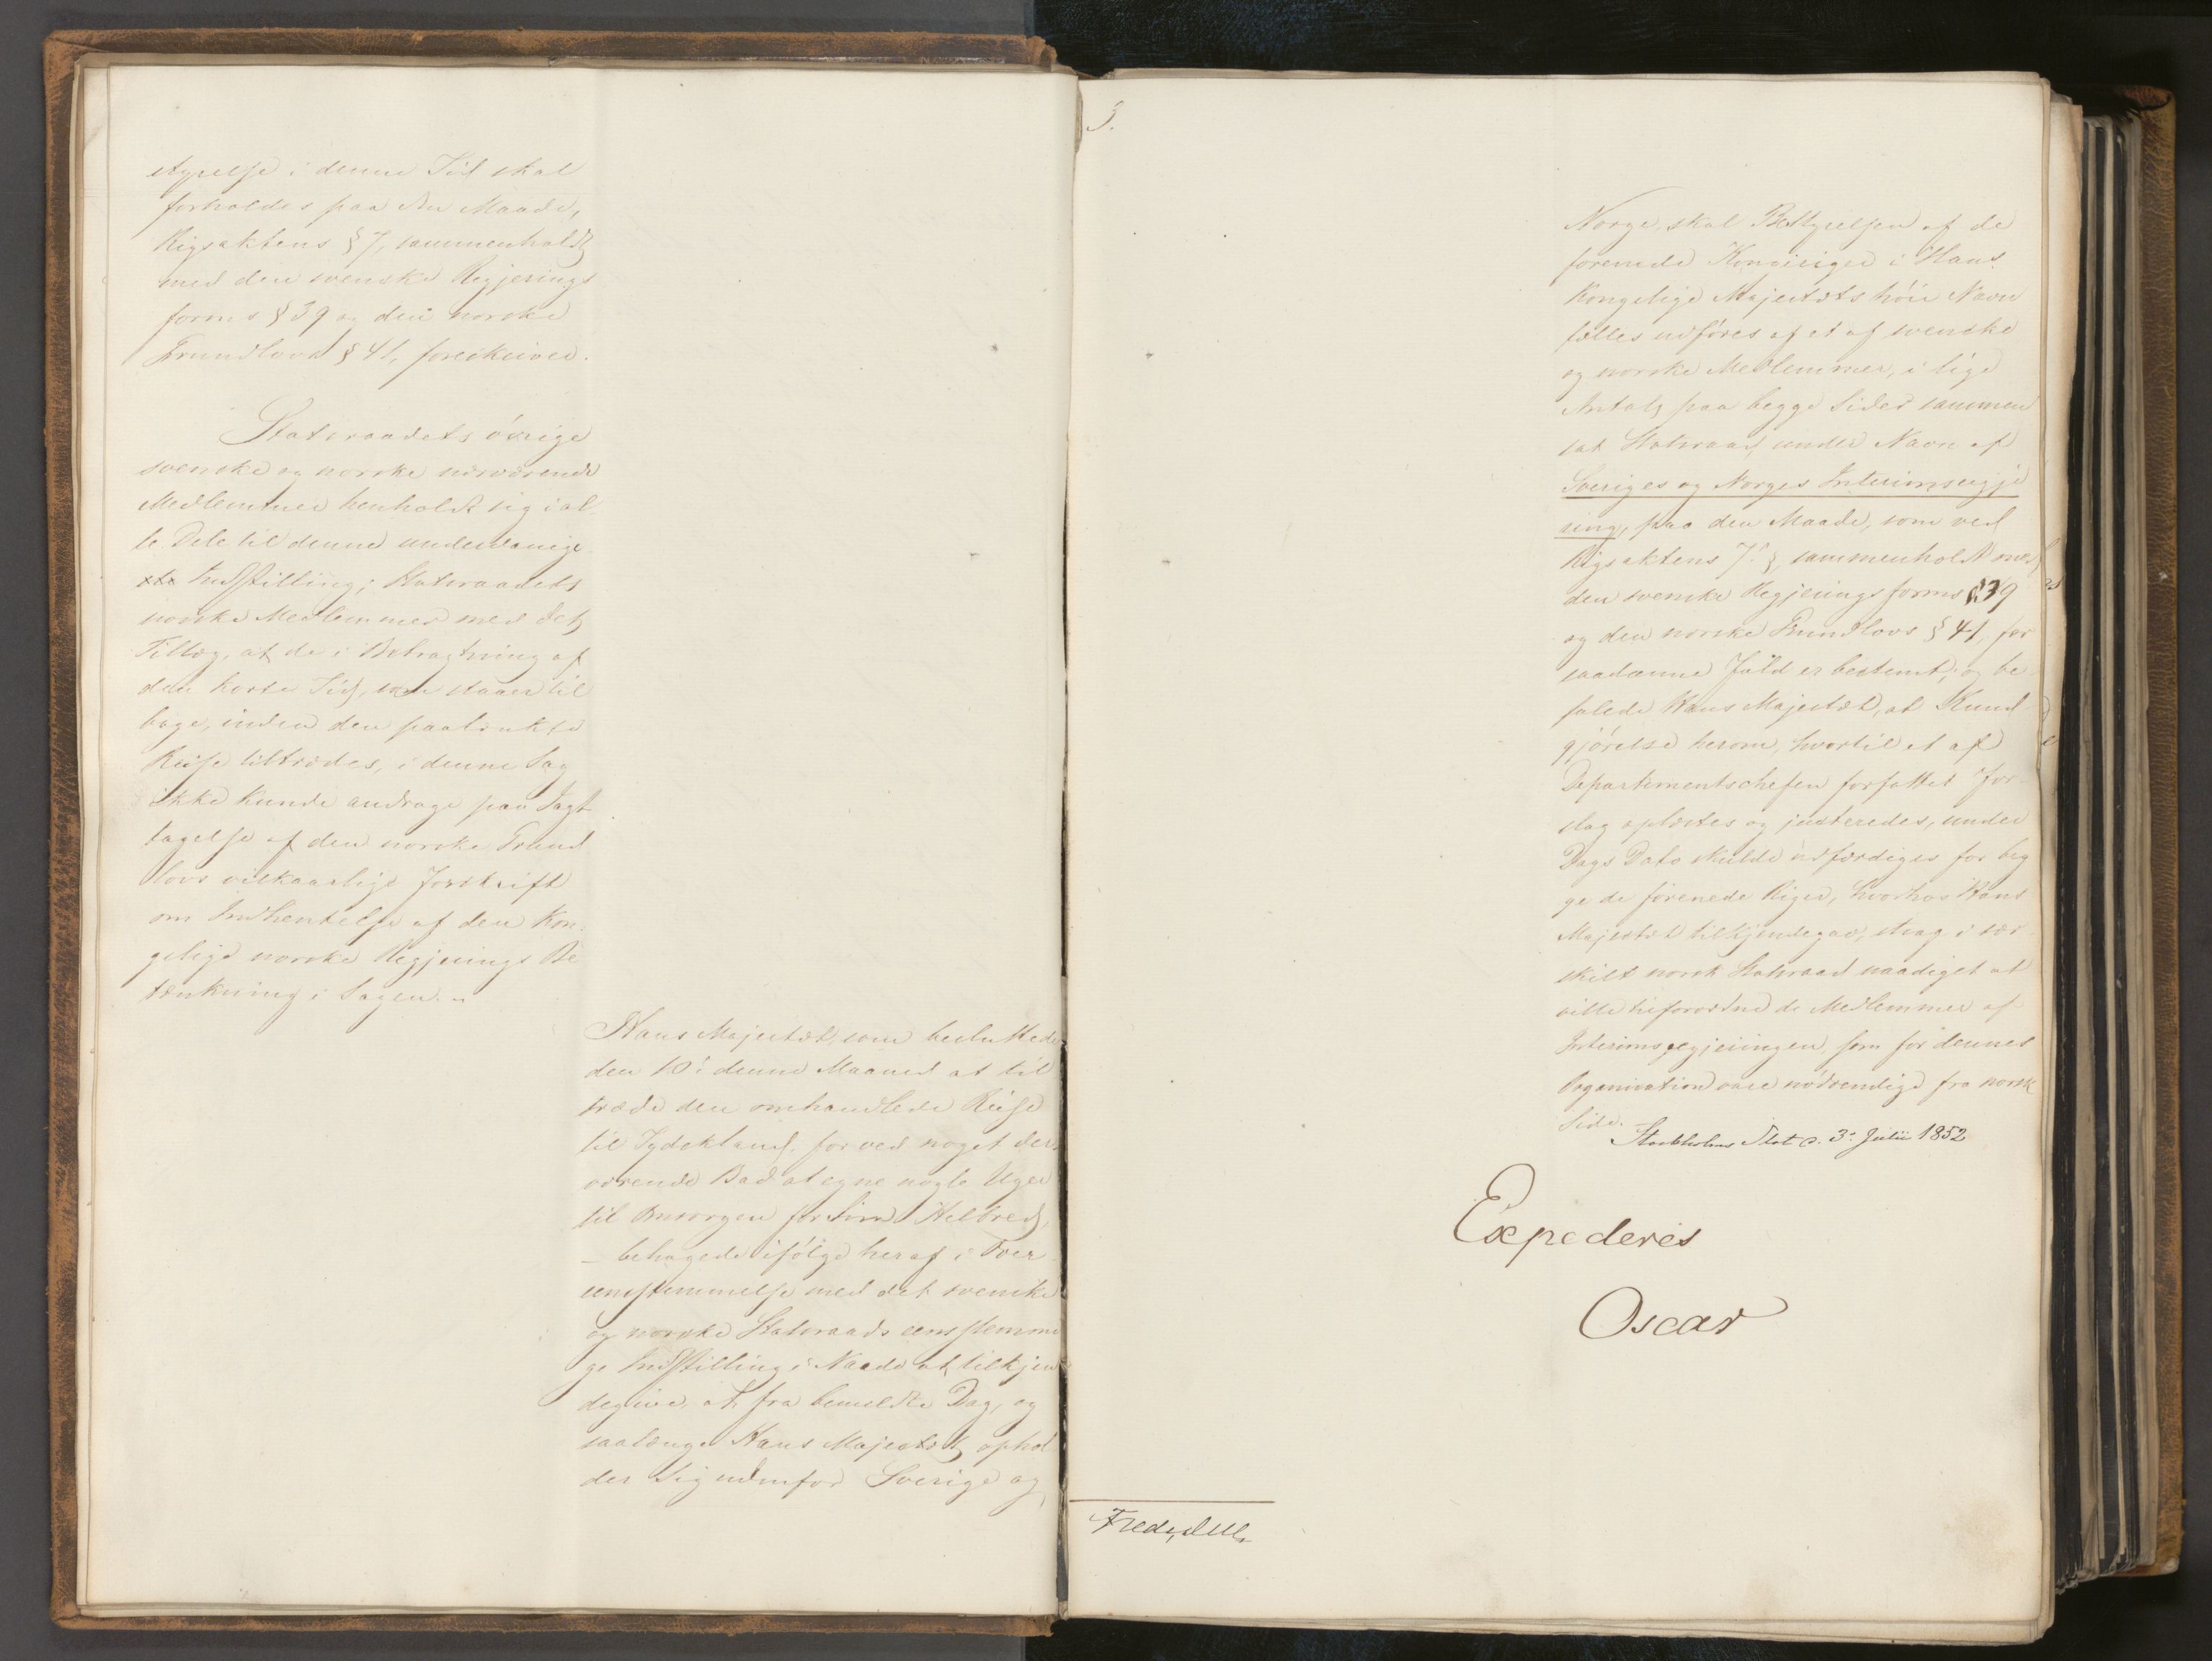 styrelse i denne Tid skal
forholdes paa den Maade,
Rigsaktens § 7, sammenholdt
med den svenske Regjerings
forms § 39 og den norske
Grundlovs § 41, foreskriver.
Statsraadets övrige
svenske og norske nærværende
Medlemmer henholdt sig i al
le Dele til denne underdanig
ste Indstilling; Statsraadets
norske Medlemmer med det
Tillæg, at de i Betragtning af
den korte Tid, som staaer til
bage, inden den paatænkte
Reise tiltrædes, i denne Sag
ikke kunde andrage paa Iagt
tagelse af den norske Grund
lovs vilkaarlige Forskrift
om Indhentelse af den Kon
gelige norske Regjerings Be
tænkning i Sagen.
Hans Majestæt, som besluttede
den 10de denne Maaned at til
træde den omhandlede Reise
til Tydskland, for ved noget der
værende Bad at egne nogle Uger
til Omsorgen for Sin Helbred,
– behagede ifølge heraf i Over
eensstemmelse med det svenske
og norske Statsraads eensstemmi
ge Indstilling i Naade at tilkjen
degive, at fra bemeldte Dag, og
saalænge Hans Majestæt ophol
der Sig udenfor Sverige og
3.
Norge, skal Bestyrelsen af de
forenede Kongeriger i Hans
Kongelige Majestæts höie Navn
fælles udföres af et af svenske
og norske Medlemmer, i lige
Antal paa begge Sider sammen
sat Statsraad under Navn af
Sveriges og Norges Interimsregje
ring, paa den Maade, som ved
Rigsaktens 7de §, sammenholdt med
den svenske Regjeringsforms § 39
og den norske Grundlovs § 41, for
saadanne Fald er bestemt; og be
falede Hans Majestæt, at Kund
gjörelse herom, hvortil et af
Departementschefen forfattet For
slag oplæstes og justeredes, under
Dags Dato skulde udfærdiges for beg
ge de forenede Riger, hvorhos Hans
Majestæt tilkjendegav, strax i sær
skilt norsk Statsraad naadigst at
ville tilforordne de Medlemmer af
Interimsregjeringen, som for dennes
Organisation vare nödvendige fra norsk
Side.
Stockholms Slot d. 3de Julii 1852
Expederes
Oscar